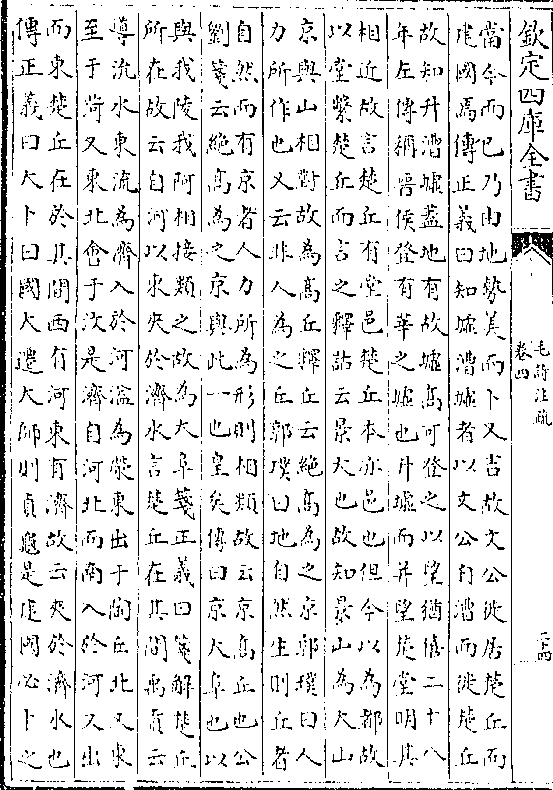 欽定四庫全書
毛詩注疏
卷四
二十四
當今而已乃由地勢美而卜又吉故文公徙居楚丘而
建國焉傳正義曰知墟漕墟者以文公自漕而徙楚丘
故知升漕墟蓋地有故墟高可登之以望猶僖二十八
年左傳稱晉侯登有莘之墟也升墟而并望楚堂明其
相近故言楚丘有堂邑楚丘本亦邑也但今以為都故
以堂繫楚丘而言之釋詁云景大也故知景山為大山
京與山相對故為高丘釋丘云絕高為之京郭璞曰人
力所作也又云非人為之丘郭璞曰地自然生則丘者
自然而有京者人力所為形則相類故云京高丘也公
劉箋云絕高為之京與此一也皇矣傳曰京大阜也以
與我陵我阿相接類之故為大阜箋正義曰箋解楚丘
所在故云自河以東夾於濟水言楚丘在其間禹貢云
導沇水東流為濟入於河溢為滎東出于陶丘北又東
至于菏又東北會于汶是濟自河北而南入於河又出
而東楚丘在於其間西有河東有濟故云夾於濟水也
傳正義曰大卜曰國大遷大師則貞龜是建國必卜之